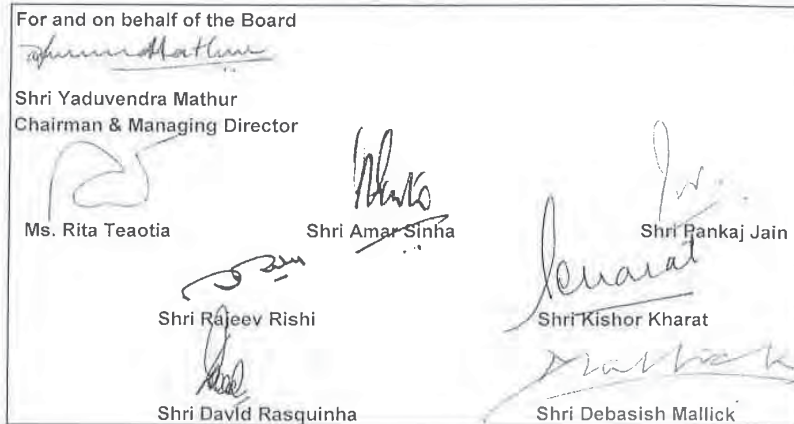 For and on behalf of the Board
Shri Yaduvendra Mathur
Chairman & Managing Director
Ms. Rita Teaotia Shri Amar Sinha Shri Pankaj Jain
Kharat
Shri Rajeev Rishi Shri Kishor Kharat
Mallick
Shri David Rasquinha Shri Debasish Mallick